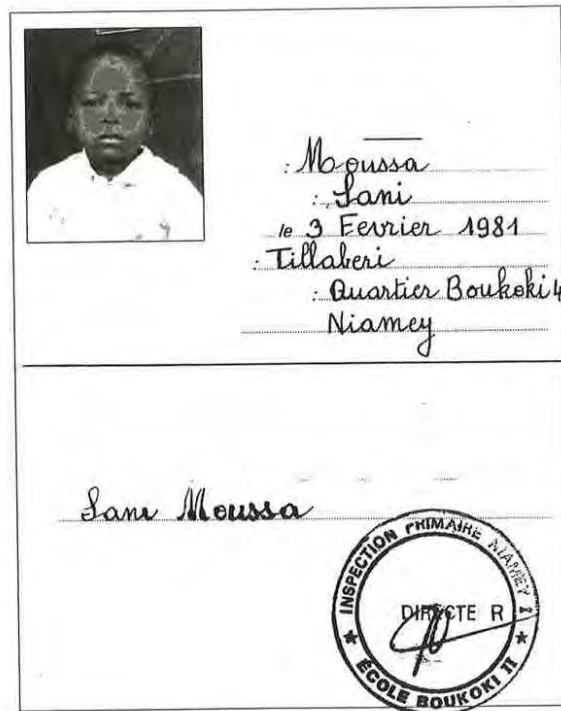 : Moussa
: Sani
le 3 Fevrier 1981
: Tillaberi
: Quartier Boukoki 4
Niamey
Sani Moussa
INSPECTION PRIMAIRE NIAMEY I
DIRECTE R
ÉCOLE BOUKOKI II